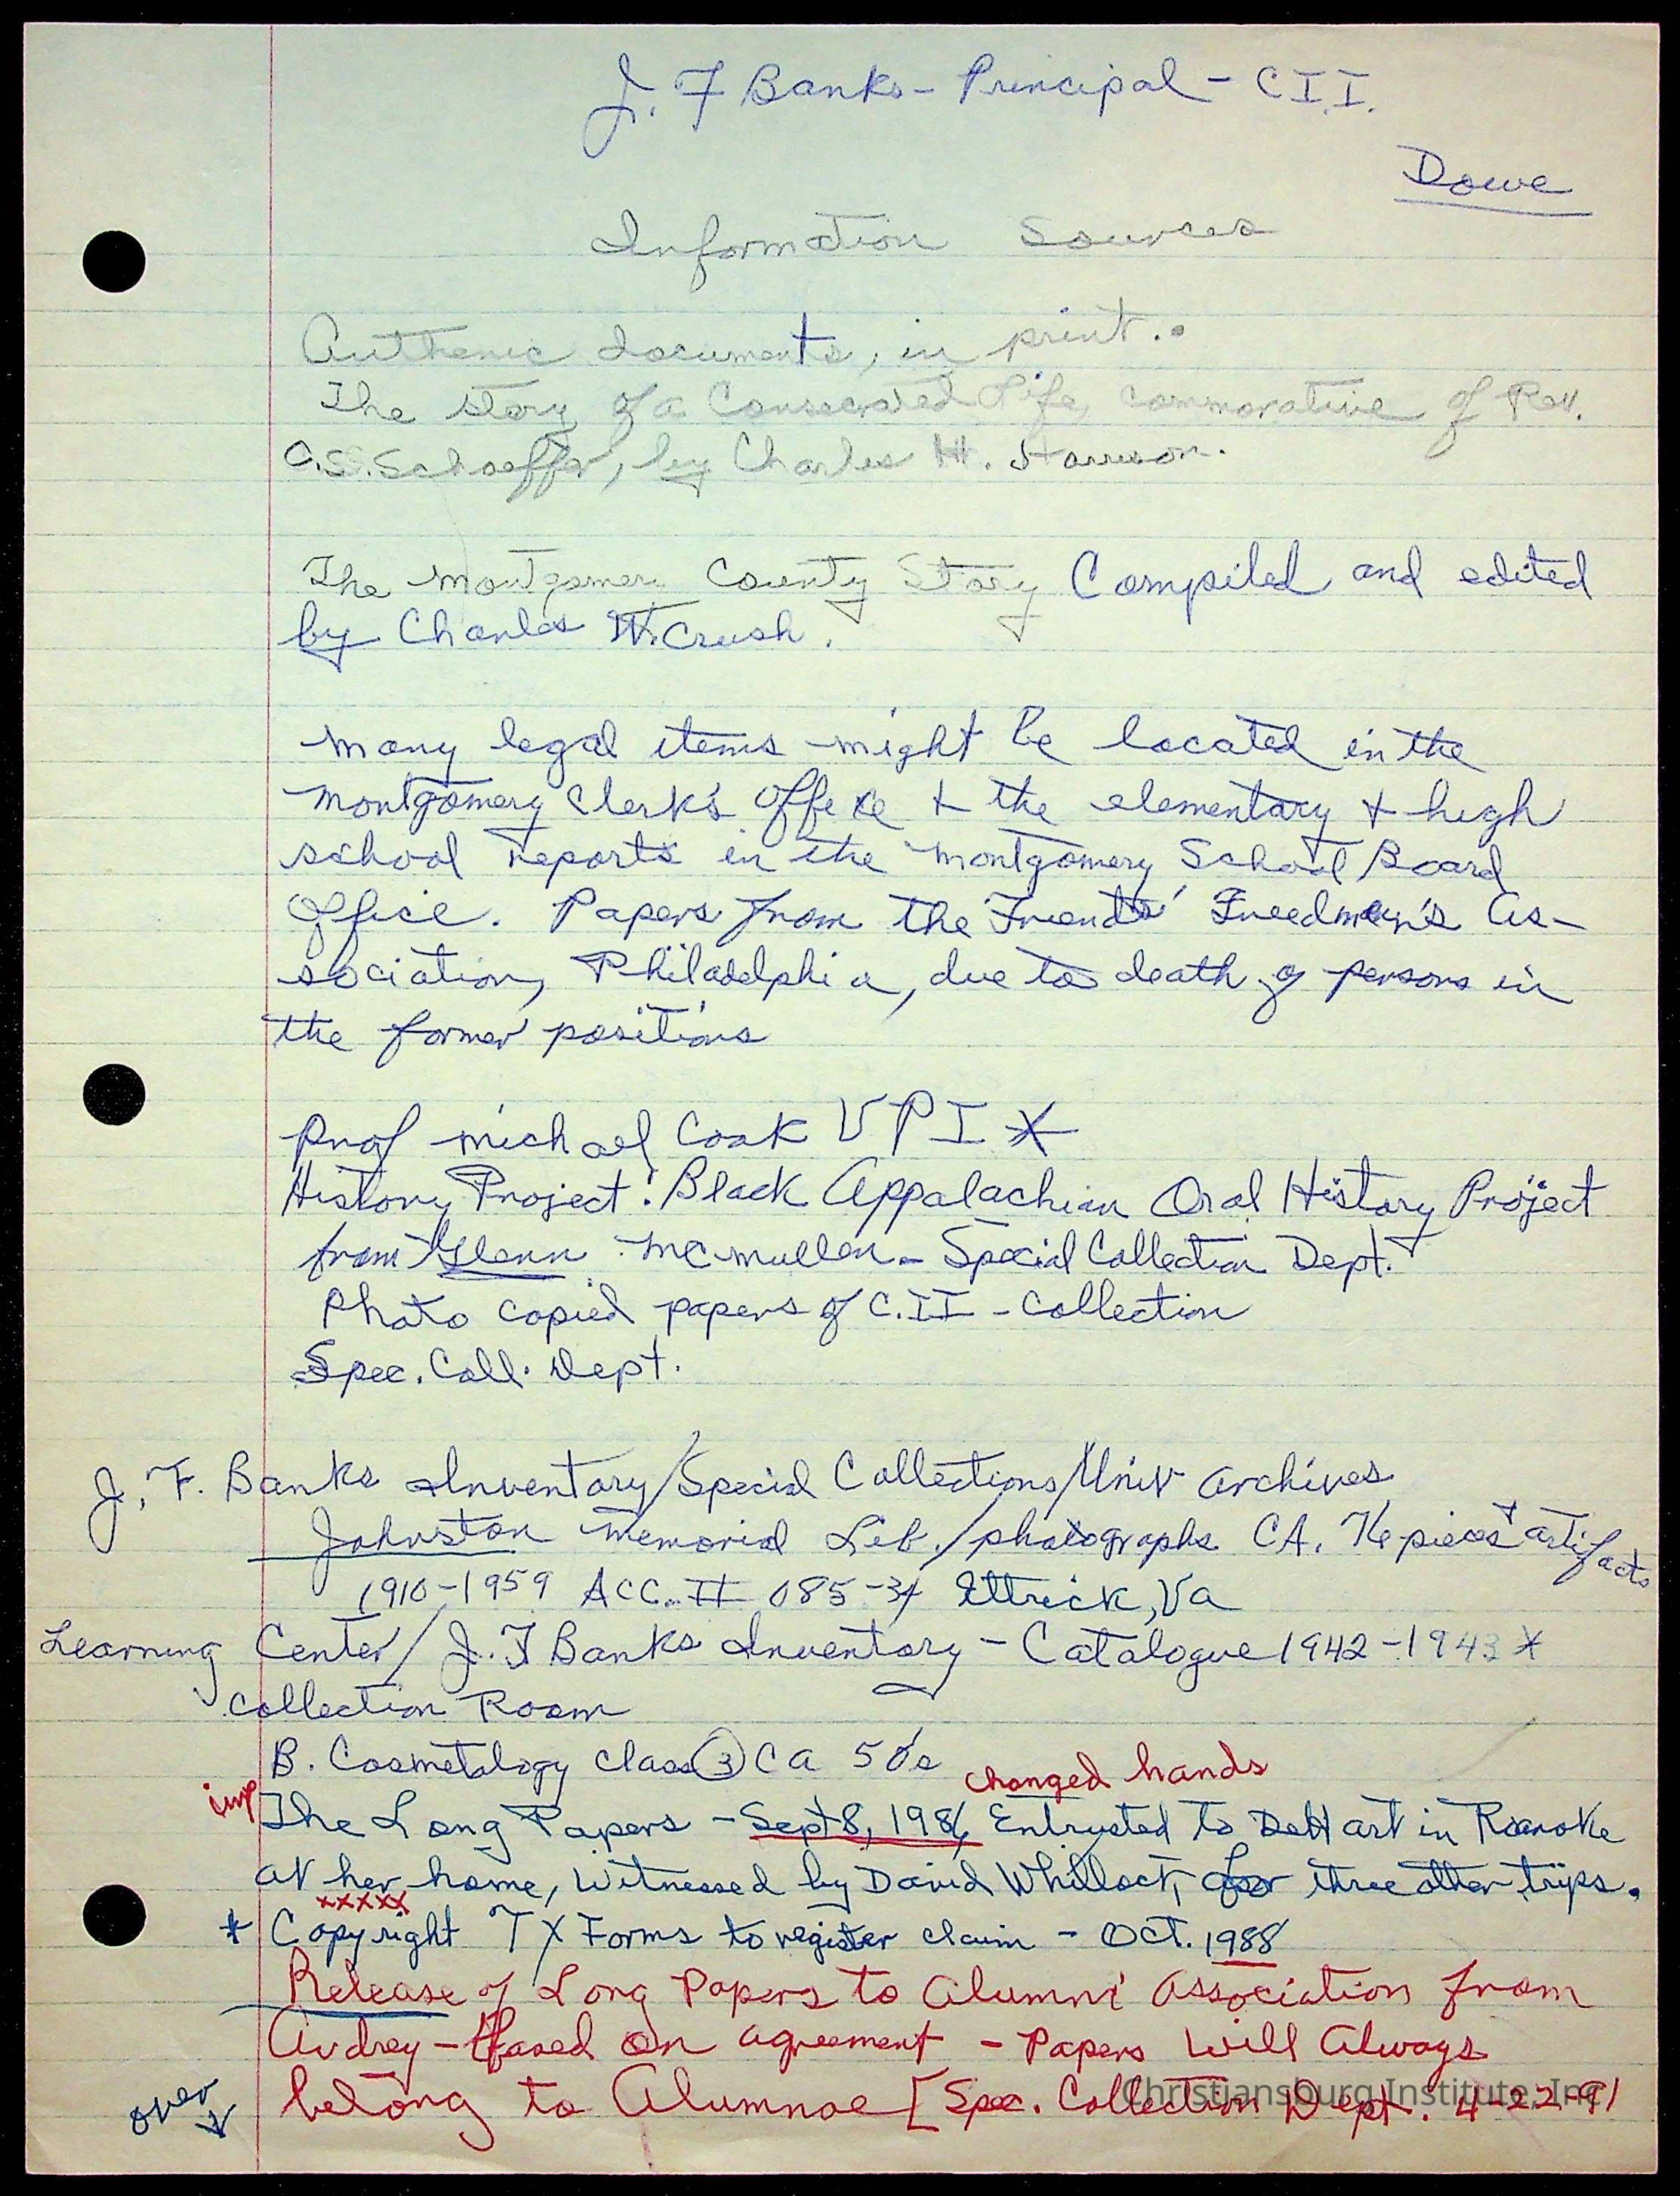 J. F Banks - Principal - C I I.
Dowe
Information Sources
Authenic documents, in print.
The story of a Consecrated Life, commorative of Rev.
C.S. Schaeffer, by Charles H. Harrison.
The Montgomery County Story Compiled and edited
by Charles W. Crush.
Many legal items might be located in the
Montgomery Clerk's Office & the elementary & high
school reports in the Montgomery School Board
Office. Papers from the Friends' Freedmen's As-
sociation, Philadelphia, due to death of persons in
the former positions
Prof Michael Cook V P I *
History Project: Black Appalachian Oral History Project
from Glenn McMullen - Special Collection Dept.
Photo copied papers of C.II - Collection
Spec. Coll. Dept.
J. F. Banks Inventory/Special Collections/Univ Archives
Johnston Memorial Lib./photographs CA. pieces + artifacts
1910-1959 ACC. # 085-34 Ettrick, Va
Learning Center/J. F Banks Inventory - Catalogue 1942-1943 *
Collection Room
B. Cosmetology class (3) Ca 50's
changed hands
imp The Long Papers - Sept 8, 1986, Entrusted to DeHart in Roanoke
at her home, Witnessed by David Whillock, for three other trips.
xxxxx
* Copyright TX Forms to register claim - Oct. 1988
Release of Long Papers to Alumni Association from
Audrey - Based on agreement - Papers Will Always
belong to Alumnae [Spec. Collection Dept. 4-22-91
over ↓
Christiansburg Institute, Inc